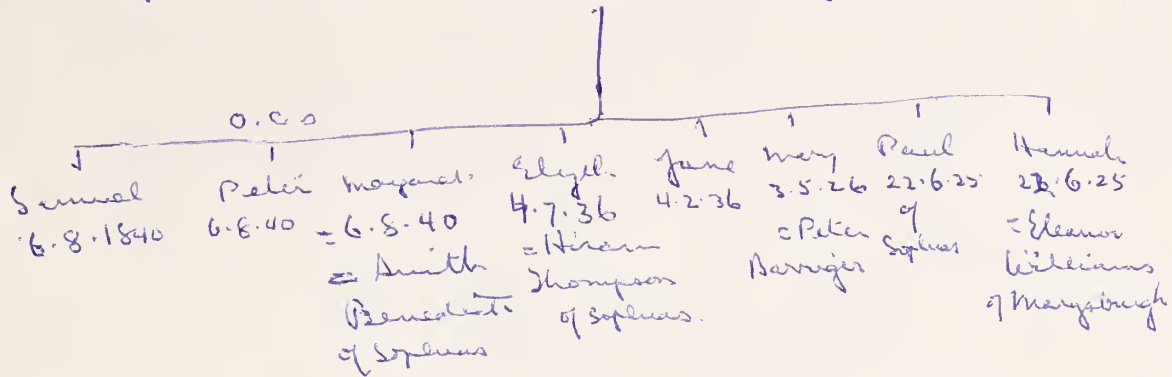 O.C.S
Samuel
6.8.1840
Peter
6.8.40
Margaret
= 6.8.40
= Smith
Benedict
of Sophias
Elizth.
4.7.36
= Hiram
Thompson
of Sophias.
Jane
4.2.36
Mary
3.5.26
= Peter
Barriger
Paul
22.6.25
of
Sophias
Hannah
22.6.25
= Eleanor
Williams
of Marysburgh